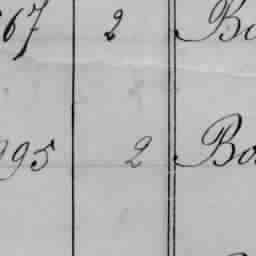 67 2 Bo
995 2 Bo